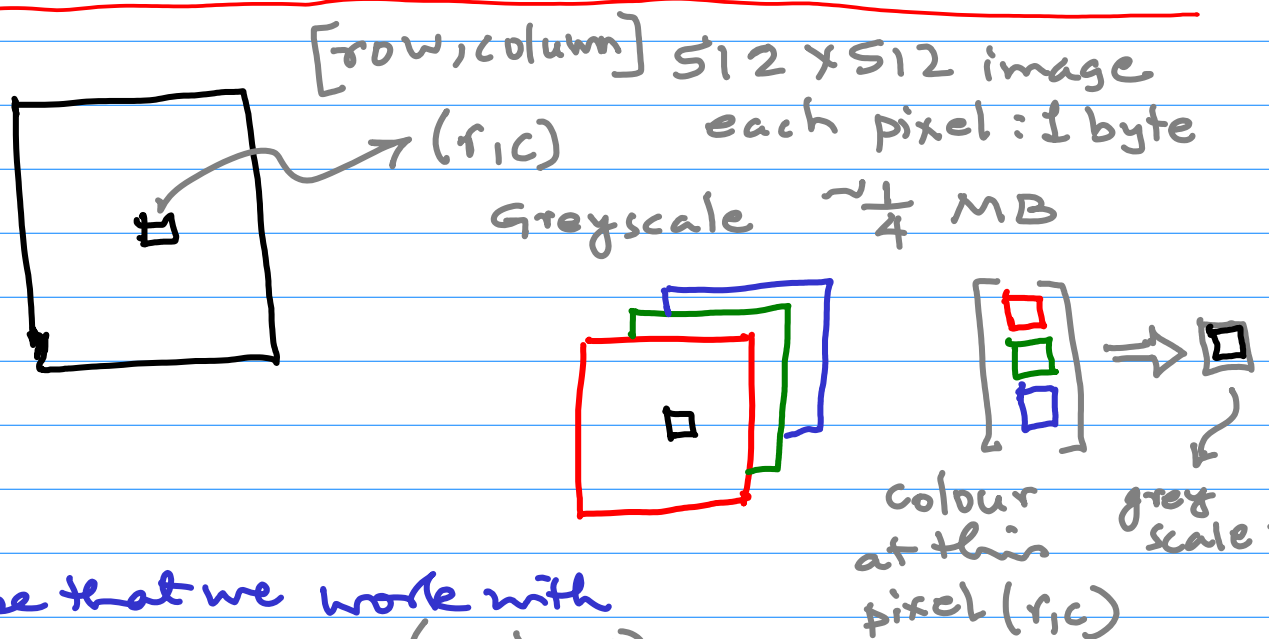 [row, column] 512 × 512 image
(r,c)
each pixel : 1 byte
Greyscale ~1/4 MB
colour
at this
pixel (r,c)
grey
scale
that we work with